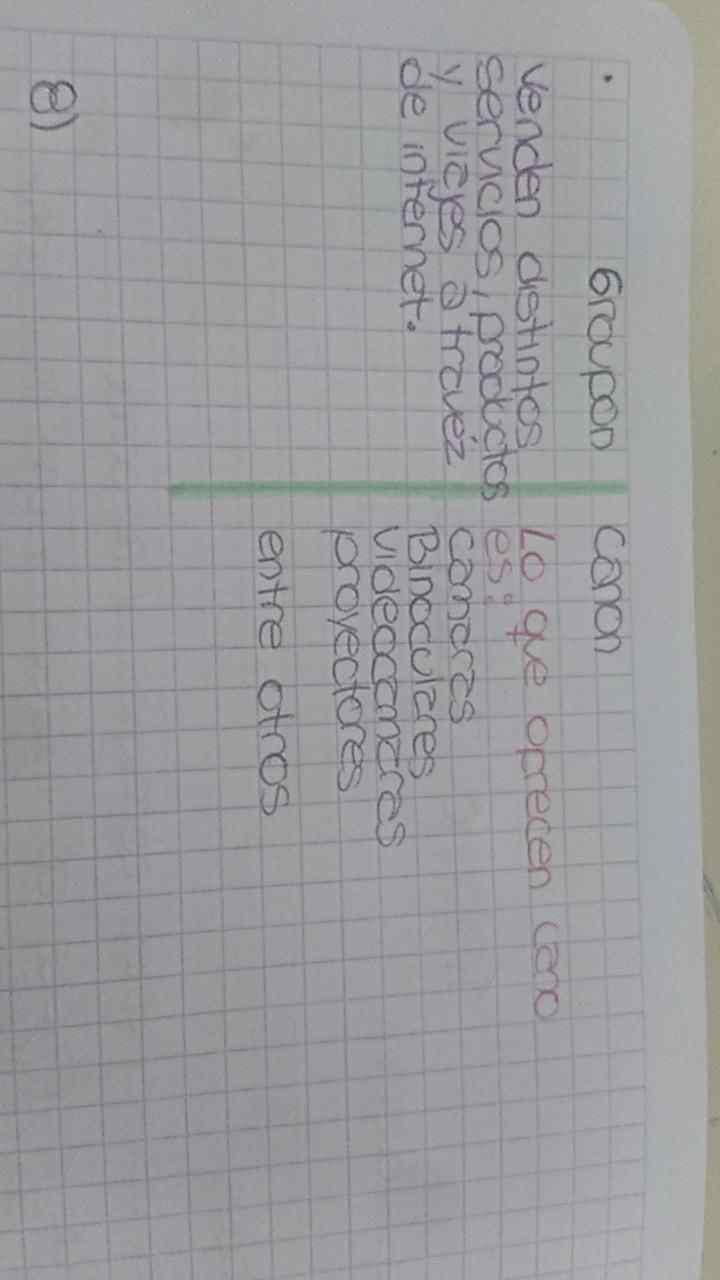 Groupon
Venden distintos
servicios, productos
y viajes a travéz
de internet.
Canon
Lo que oprecen cano
es:
camaras
Binoculares
videocamaras
proyectores
entre otros
8)